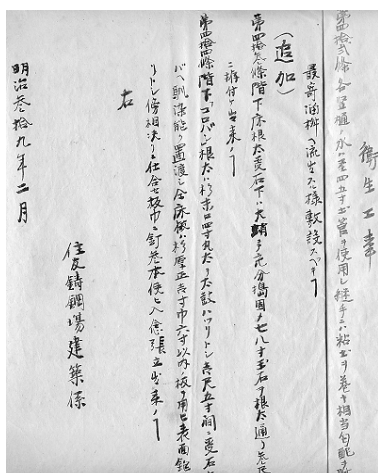 衛生工事
第四拾弐條 各竪樋ノ水ハ径四五寸土管ヲ使用シ継手ニハ粘土ヲ巻キ相当勾配ヲ
最寄溜桝ヘ流出スル様敷設スベシ
（追加）
第四拾参條 階下床根太受石下ハ大蛸ヲ充分搗固メ七八寸玉石ヲ根太通リ
ニ据付ケ出来ノコト
第四拾四條 階下「コロバシ根太」ハ杉末口四寸丸太ヲ太鼓ハツリトシ壱尺五寸間ニ受石
バヘ馴染能ク置渡シ全床板ハ杉厚正壱寸巾六寸以内ノ板ヲ用ヒ表面鉋
リトシ傍相决リ仕合セ板巾ニ釘参本使ヒ入念張立出来ノコト
右
明治参拾九年二月
住友鋳鋼場建築係